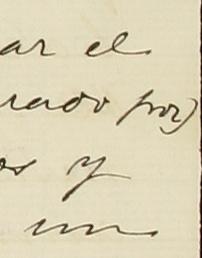 ar el
rado por)
os y
un